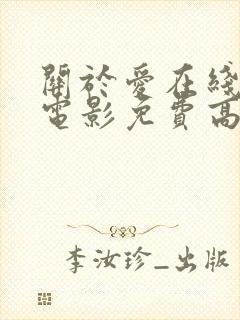 關於愛在綫
電影免費高
李汝珍_出版